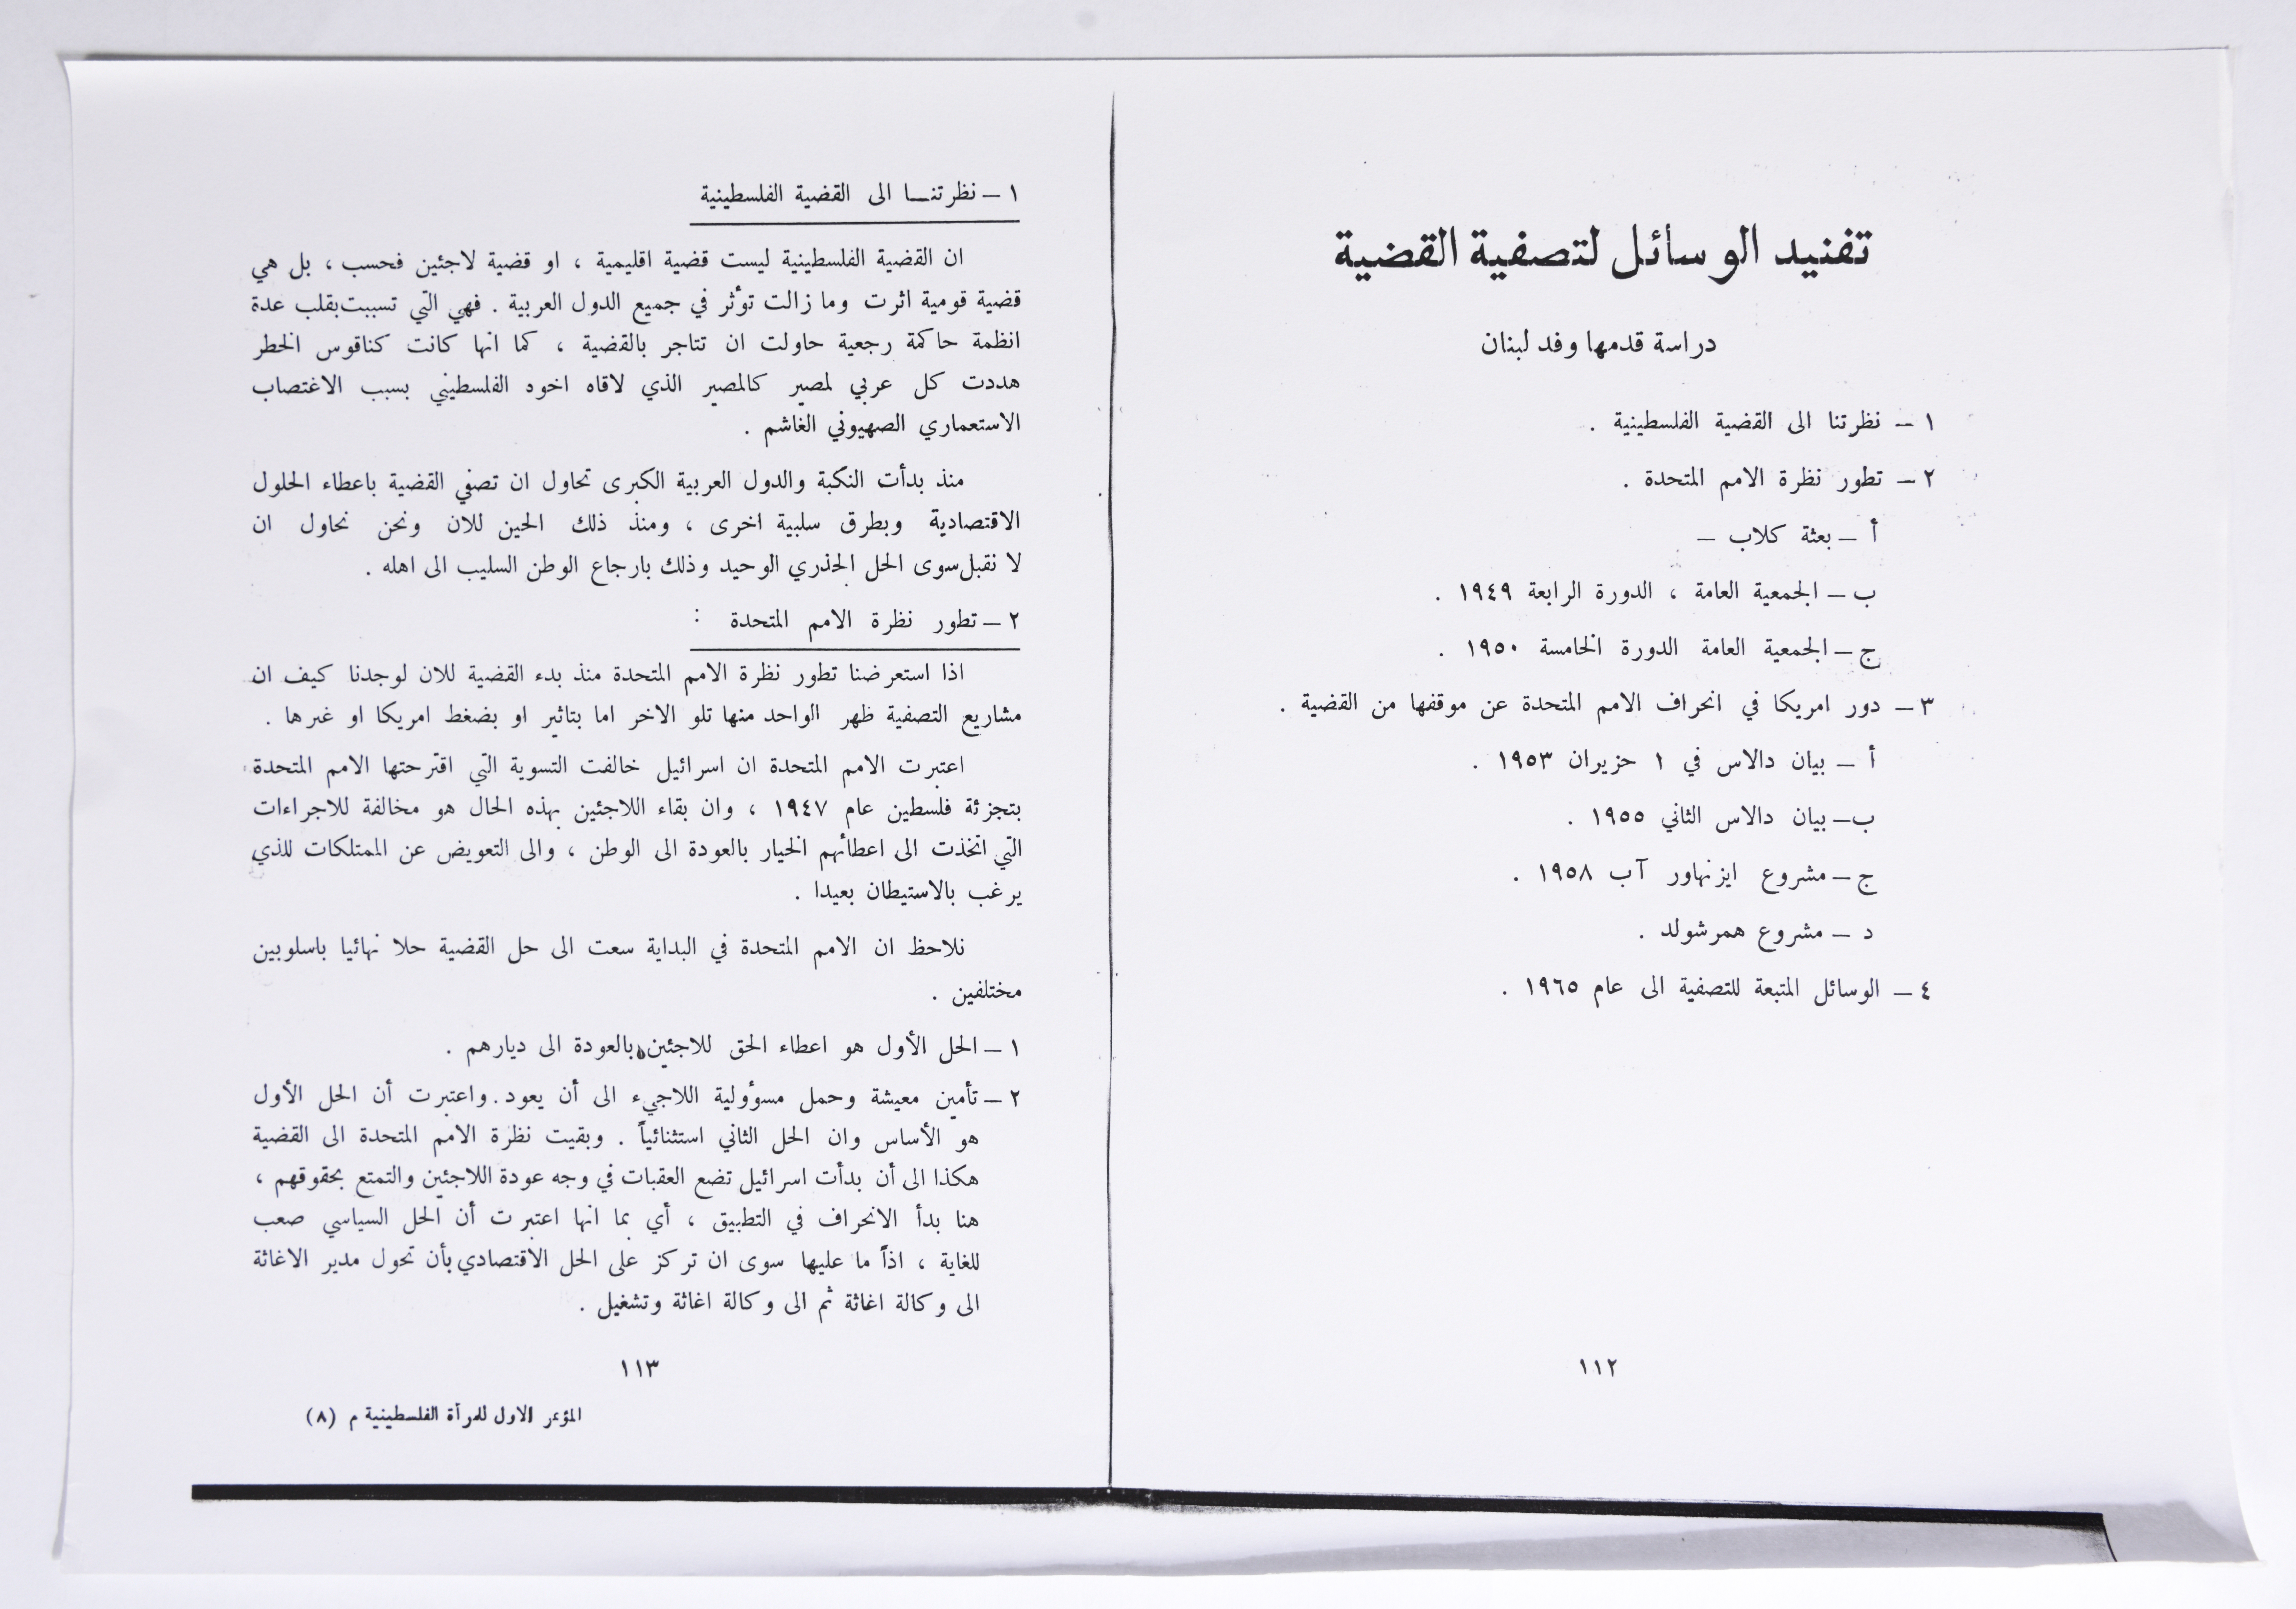 تفنيد الوسائل لتصفية القضية
دراسة قدمها وفد لبنان
١ – نظرتنا الى القضية الفلسطينية .
٢ – تطور نظرة الامم المتحدة .
أ – بعثة كلاب –
ب – الجمعية العامة ، الدورة الرابعة ١٩٤٩ .
ج – الجمعية العامة الدورة الخامسة ١٩٥٠ .
٣ – دور امريكا في انحراف الامم المتحدة عن موقفها من القضية .
أ – بيان دالاس في ١ حزيران ١٩٥٣ .
ب – بيان دالاس الثاني ١٩٥٥ .
ج – مشروع ايزنهاور آب ١٩٥٨ .
د – مشروع همرشولد .
٤ – الوسائل المتبعة للتصفية الى عام ١٩٦٥ .
١١٢
١ – نظرتنا الى القضية الفلسطينية
ان القضية الفلسطينية ليست قضية اقليمية ، او قضية لاجئين فحسب ، بل هي
قضية قومية اثرت وما زالت تؤثر في جميع الدول العربية . فهي التي تسببت بقلب عدة
انظمة حاكمة رجعية حاولت ان تتاجر بالقضية ، كما انها كانت كناقوس الخطر
هددت كل عربي لمصير كالمصير الذي لاقاه اخوه الفلسطيني بسبب الاغتصاب
الاستعماري الصهيوني الغاشم .
منذ بدأت النكبة والدول العربية الكبرى تحاول ان تصفي القضية باعطاء الحلول
الاقتصادية وبطرق سلبية اخرى ، ومنذ ذلك الحين للان ونحن نحاول ان
لا نقبل سوى الحل الجذري الوحيد وذلك بارجاع الوطن السليب الى اهله .
٢ – تطور نظرة الامم المتحدة :
اذا استعرضنا تطور نظرة الامم المتحدة منذ بدء القضية للان لوجدنا كيف ان
مشاريع التصفية ظهر الواحد منها تلو الاخر اما بتاثير او بضغط امريكا او غيرها .
اعتبرت الامم المتحدة ان اسرائيل خالفت التسوية التي اقترحتها الامم المتحدة
بتجزئة فلسطين عام ١٩٤٧ ، وان بقاء اللاجئين بهذه الحال هو مخالفة للاجراءات
التي اتخذت الى اعطائهم الخيار بالعودة الى الوطن ، والى التعويض عن الممتلكات للذي
يرغب بالاستيطان بعيدا .
نلاحظ ان الامم المتحدة في البداية سعت الى حل القضية حلا نهائيا باسلوبين
مختلفين .
١ – الحل الأول هو اعطاء الحق للاجئين بالعودة الى ديارهم .
٢ – تأمين معيشة وحمل مسوؤلية اللاجيء الى أن يعود . واعتبرت أن الحل الأول
هو الأساس وان الحل الثاني استثنائياً . وبقيت نظرة الامم المتحدة الى القضية
هكذا الى أن بدأت اسرائيل تضع العقبات في وجه عودة اللاجئين والتمتع بحقوقهم ،
هنا بدأ الانحراف في التطبيق ، أي بما انها اعتبرت أن الحل السياسي صعب
للغاية ، اذاً ما عليها سوى ان تركز على الحل الاقتصادي بأن تحول مدير الاغاثة
الى وكالة اغاثة ثم الى وكالة اغاثة وتشغيل .
١١٣
المؤتمر الاول للمرأة الفلسطينية م (٨)